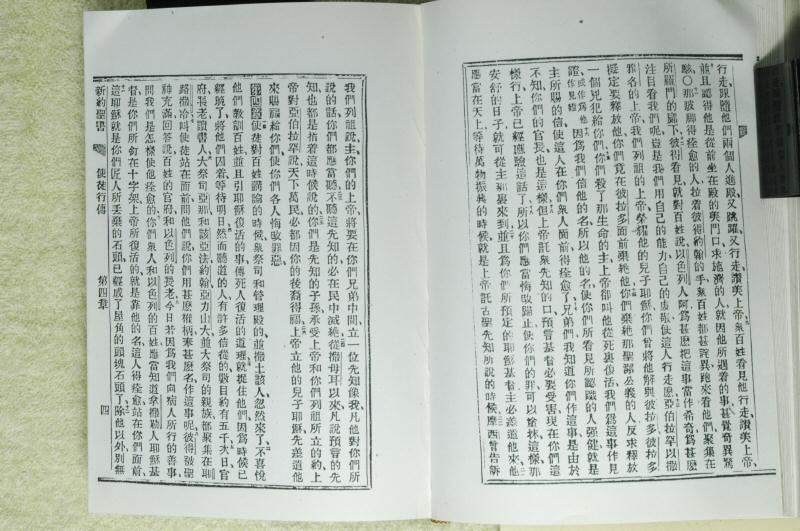 行走跟隨他們兩個人進殿又跳躍又行走讚美上帝、衆百姓看見他行走讚美上帝、
並且認得他是從前坐在殿的美門口、求施濟的人、就因他所遇着的事甚覺奇異驚
駭○那跛脚得痊愈的人、拉着彼得約翰的手、衆百姓都甚詫異、跑來看他們、聚集在
所羅門的廊下、彼得看見就對百姓說以色列人阿、爲甚麽把這事當作希奇、爲甚麽
注目看我們呢、豈是我們用自己的能力自己的虔敬使這人行走麽亞伯拉罕以撒
雅各的上帝我們列祖的上帝、榮耀他的兒子耶穌、你們曾將他解與彼拉多、彼拉多
擬定要釋放他、你們竟在彼拉多面前棄絕他、你們棄絕那聖潔公義的人、反求釋放
一個兇犯給你們、你們殺了那生命的主、上帝卻叫他從死裏復活、我們爲這事作見
證、因爲我們信他的名、所以他的名使你們所看見所認識的人強健、就是
主所賜的信、使這人在你們衆人面前得痊愈了、兄弟們、我知道你們作這事是由於
不知、你們的官長也是這樣、但上帝託衆先知的口、預言基督必要受害、現在你們這
樣行、上帝已經應驗這話了、所以你們應當悔改歸正、使你們的罪可以塗抹、這樣那
安舒的日子、就可從主那裏來到、並且爲你們所預定的耶穌基督、主必差遣他來、他
應當在天上、等待萬物振興的時候、就是上帝託古聖先知所說的時候、摩西曾告訴
我們列祖說主你們的上帝將要在你們兄弟中間立一位先知像我、凡他對你們所
說的話、你們都應當聽、不聽這先知的、必在民中滅絕、從撒母耳以來凡說預言的先
知、也都是指着這時候說的、你們是先知的子孫、承受上帝和你們列祖所立的約、上
帝對亞伯拉罕說、天下萬民必都因你的後裔得福、上帝立他的兒子耶穌先差遣他
來賜福給你們、使你們各人悔改罪惡、
第四章 使徒對百姓講論的時候、衆祭司和管理殿的、並撒土該人、忽然來了、不喜悅
他們教訓百姓、並且引耶穌復活的事、傳死人復活的道理、就捉住他們、因爲時候已
經晚了、將他們囚着等待明日、然而聽道的人、有許多信從的、數目約有五千、次日官
府長老讀書人、大祭司亞那和該亞法約翰亞力山大並大祭司的親族、都聚集在耶
路撒冷、叫使徒站在面前、問他們說、你們用甚麽權柄奉甚麽名作這事呢、彼得被聖
神充滿、回答說、百姓的官府和以色列的長老、今日若因爲我們向病人所行的善事
問我們是怎樣使他痊愈的、你們衆人和以色列的百姓、應當知道拿撒勒人耶穌基
督、是你們所釘在十字架、上帝所復活的、就是靠他的名這人得痊愈站在你們面前、
這耶穌就是你們匠人所丟棄的石頭、已經成了屋角的頭塊石頭了、除他以外別無
新約聖書 使徒行傳 第四章 四